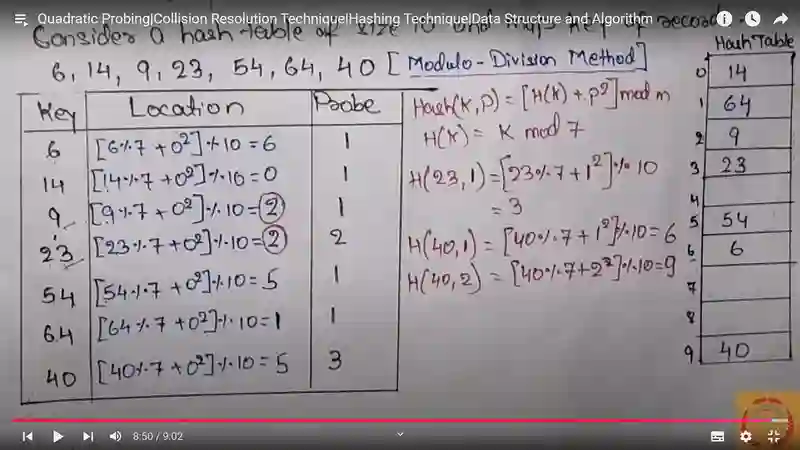 Quadratic Probing|Collision Resolution Technique|Hashing Technique|Data Structure and Algorithm
Consider a hash table of size 10 and key of record
6, 14, 9, 23, 54, 64, 40 [Modulo-Division Method]
Key Location Probe
6 [6%7 + 0²]%10 = 6 1
14 [14%7 + 0²]%10 = 0 1
9 [9%7 + 0²]%10 = 2 1
23 [23%7 + 0²]%10 = 2 2
54 [54%7 + 0²]%10 = 5 1
64 [64%7 + 0²]%10 = 1 1
40 [40%7 + 0²]%10 = 5 3
Hash(K, P) = [H(K) + P²] mod m
H(K) = K mod 7
H(23, 1) = [23%7 + 1²]%10
= 3
H(40, 1) = [40%7 + 1²]%10 = 6
H(40, 2) = [40%7 + 2²]%10 = 9
Hash Table
0 14
1 64
2 9
3 23
4
5 54
6 6
7
8
9 40
8:50 / 9:02